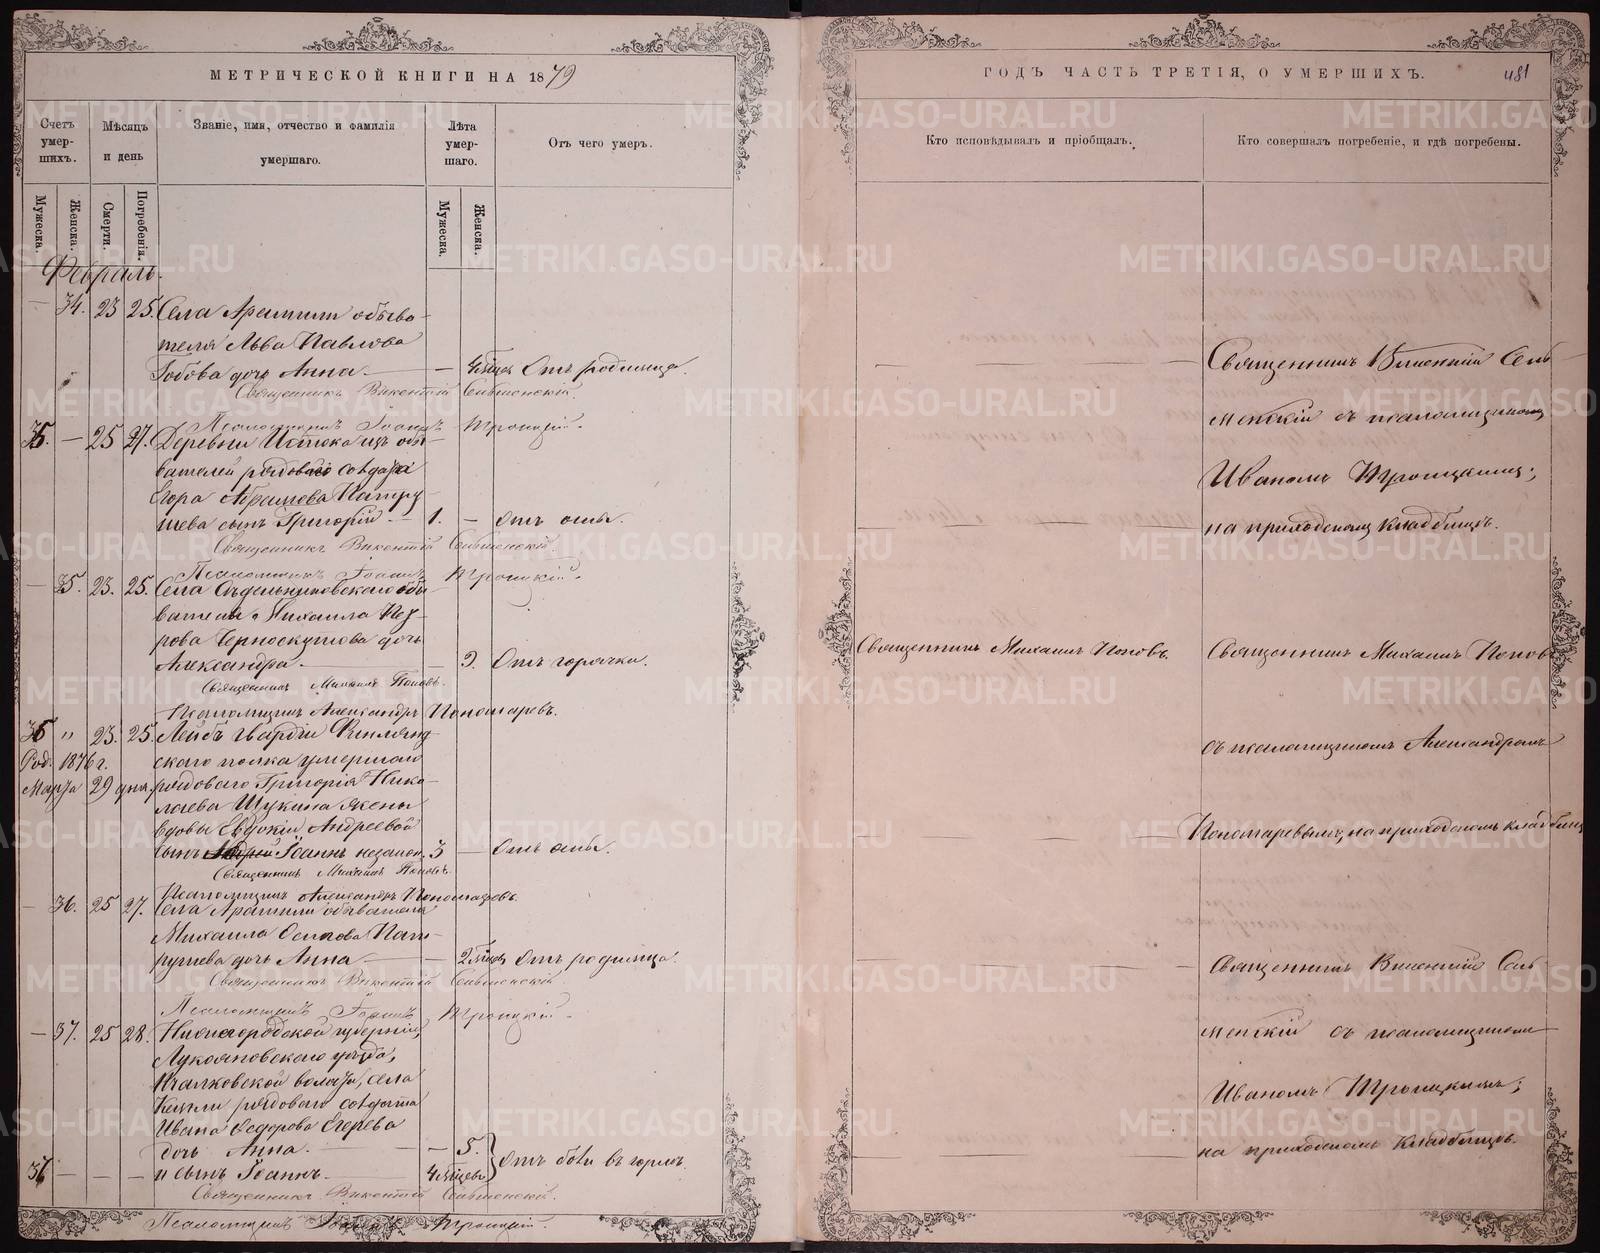 МЕТРИЧЕСКОЙ КНИГИ НА 1879
Счетъ умер-шихъ.
Мѣсяцъ и день
Званіе, имя, отчество и фамилія умершаго.
Лѣта умер-шаго.
Отъ чего умеръ.
Мужеска.
Женска.
Смерти.
Погребенія.
Мужеска.
Женска.
Февраль.
— 34. 23 25. Села Арамили обыва-
теля Льва Павлова
дочь Анна. — 4 мѣсяц. Отъ родимца.
Священникъ Викентій
Псаломщикъ Іоаннъ Троицкій.
35. — 25 27. Деревни Истока изъ обы-
вателей рядоваго солдата
Егора Абрамова Патру-
шева сынъ Григорій — 1. — Отъ оспы.
Священникъ Викентій
Псаломщикъ Іоаннъ Троицкій.
— 35. 23. 25. Села Сѣдельниковскаго обы-
вателя Михаила Пет-
рова Черноскутова дочь
Александра. — 9. Отъ горячки.
Священникъ Михаилъ Поповъ.
Псаломщикъ Александръ Пономаревъ.
36 " 23. 25. Лейбъ гвардіи Финлянд-
Род. 1876 г. скаго полка умершаго
Марта 29 дня. рядоваго Григорія Нико-
лаева Щукина жены
вдовы Евдокіи Андреевой
сынъ Іоаннъ незакон. 3 — Отъ оспы.
Священникъ Михаилъ Поповъ.
Псаломщикъ Александръ Пономаревъ.
— 36. 25 27. Села Арамили обывателя
Михаила Осипова Пат-
рушева дочь Анна — 2 мѣсяц. Отъ родимца.
Священникъ Викентій
Псаломщикъ Іоаннъ Троицкій.
— 37. 25 28. Нижегородской губерніи,
Лукояновскаго уѣзда,
волости, села
рядоваго солдата
Ивана Ѳедорова Егерева
дочь Анна. — 5.
37 — — — и сынъ Іоаннъ. 4 мѣсяцев. Отъ боли въ горлѣ.
Священникъ Викентій
Псаломщикъ Іоаннъ Троицкій.
ГОДЪ ЧАСТЬ ТРЕТІЯ, О УМЕРШИХЪ.
481
Кто исповѣдывалъ и пріобщалъ.
Кто совершалъ погребеніе, и гдѣ погребены.
Священникъ Викентій Сель-
менскій съ псаломщикомъ
Иваномъ Троицкимъ;
на приходскомъ кладбищѣ.
Священникъ Михаилъ Поповъ.
Священникъ Михаилъ Поповъ
съ псаломщикомъ Александромъ
Пономаревымъ; на приходскомъ кладбищѣ
Священникъ Викентій Сель-
менскій съ псаломщикомъ
Иваномъ Троицкимъ;
на приходскомъ кладбищѣ.
METRIKI.GASO-URAL.RU